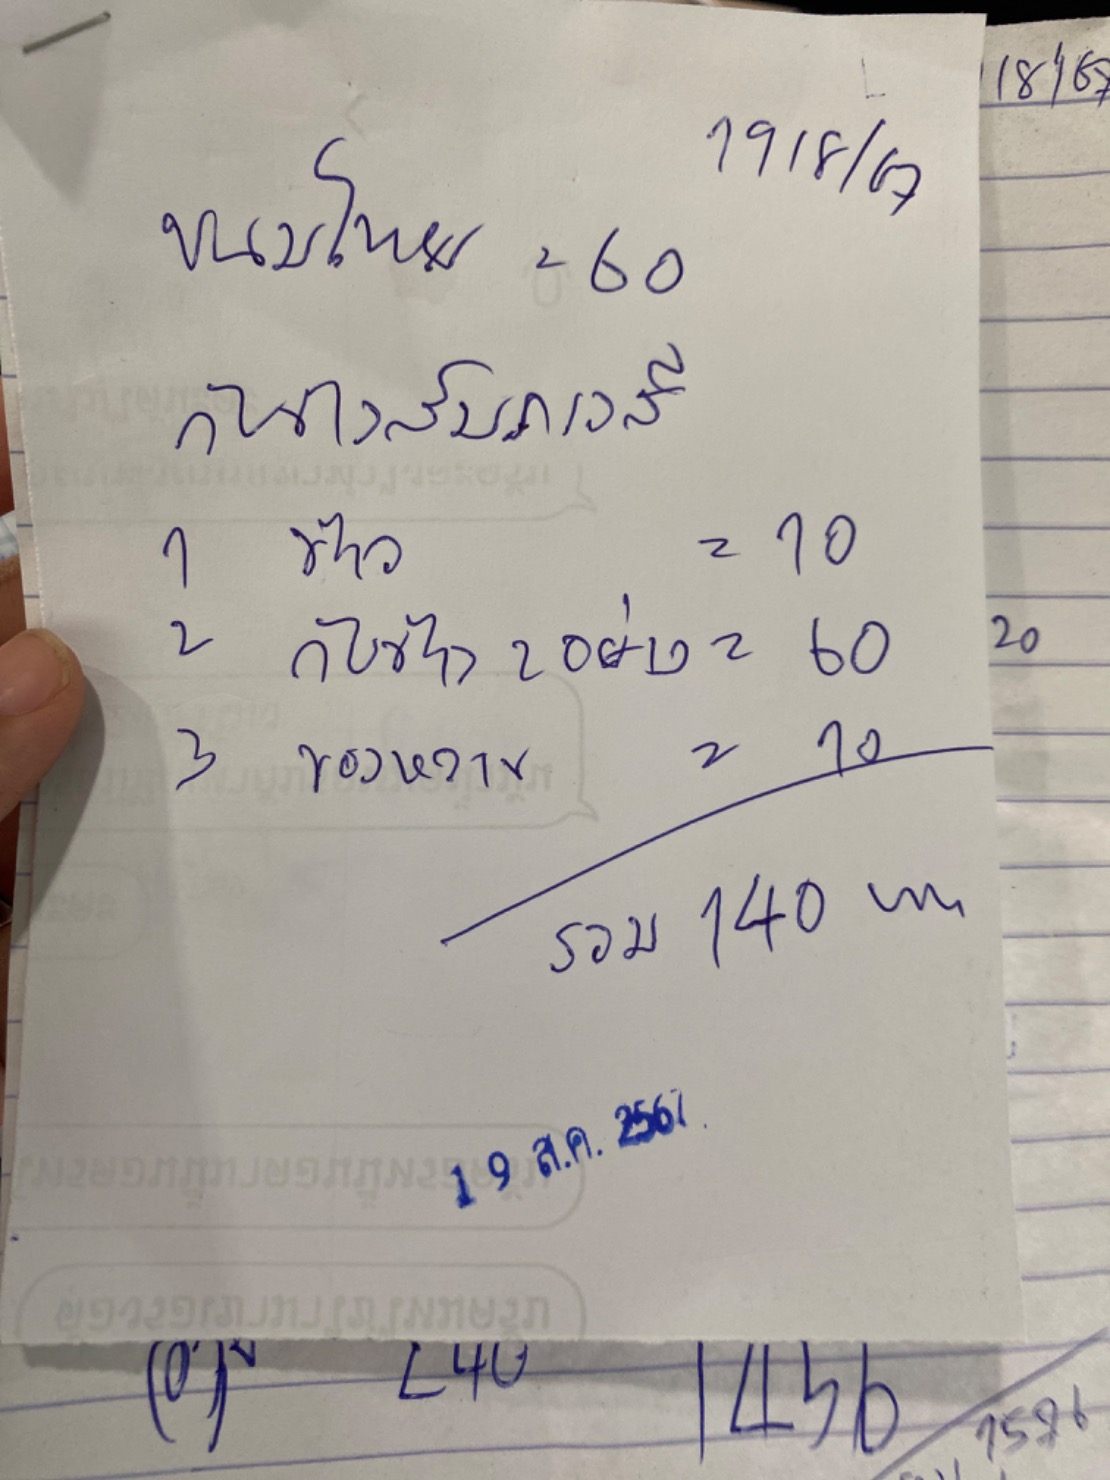 1918/67
ขนมไทย = 60
กับข้าวสัมภเวสี
1 ข้าว = 10
2 กับข้าว 2 อย่าง = 60
3 ของหวาน = 10
รวม 140 บาท
19 ส.ค. 2567
18/67
20
240
1456
1576